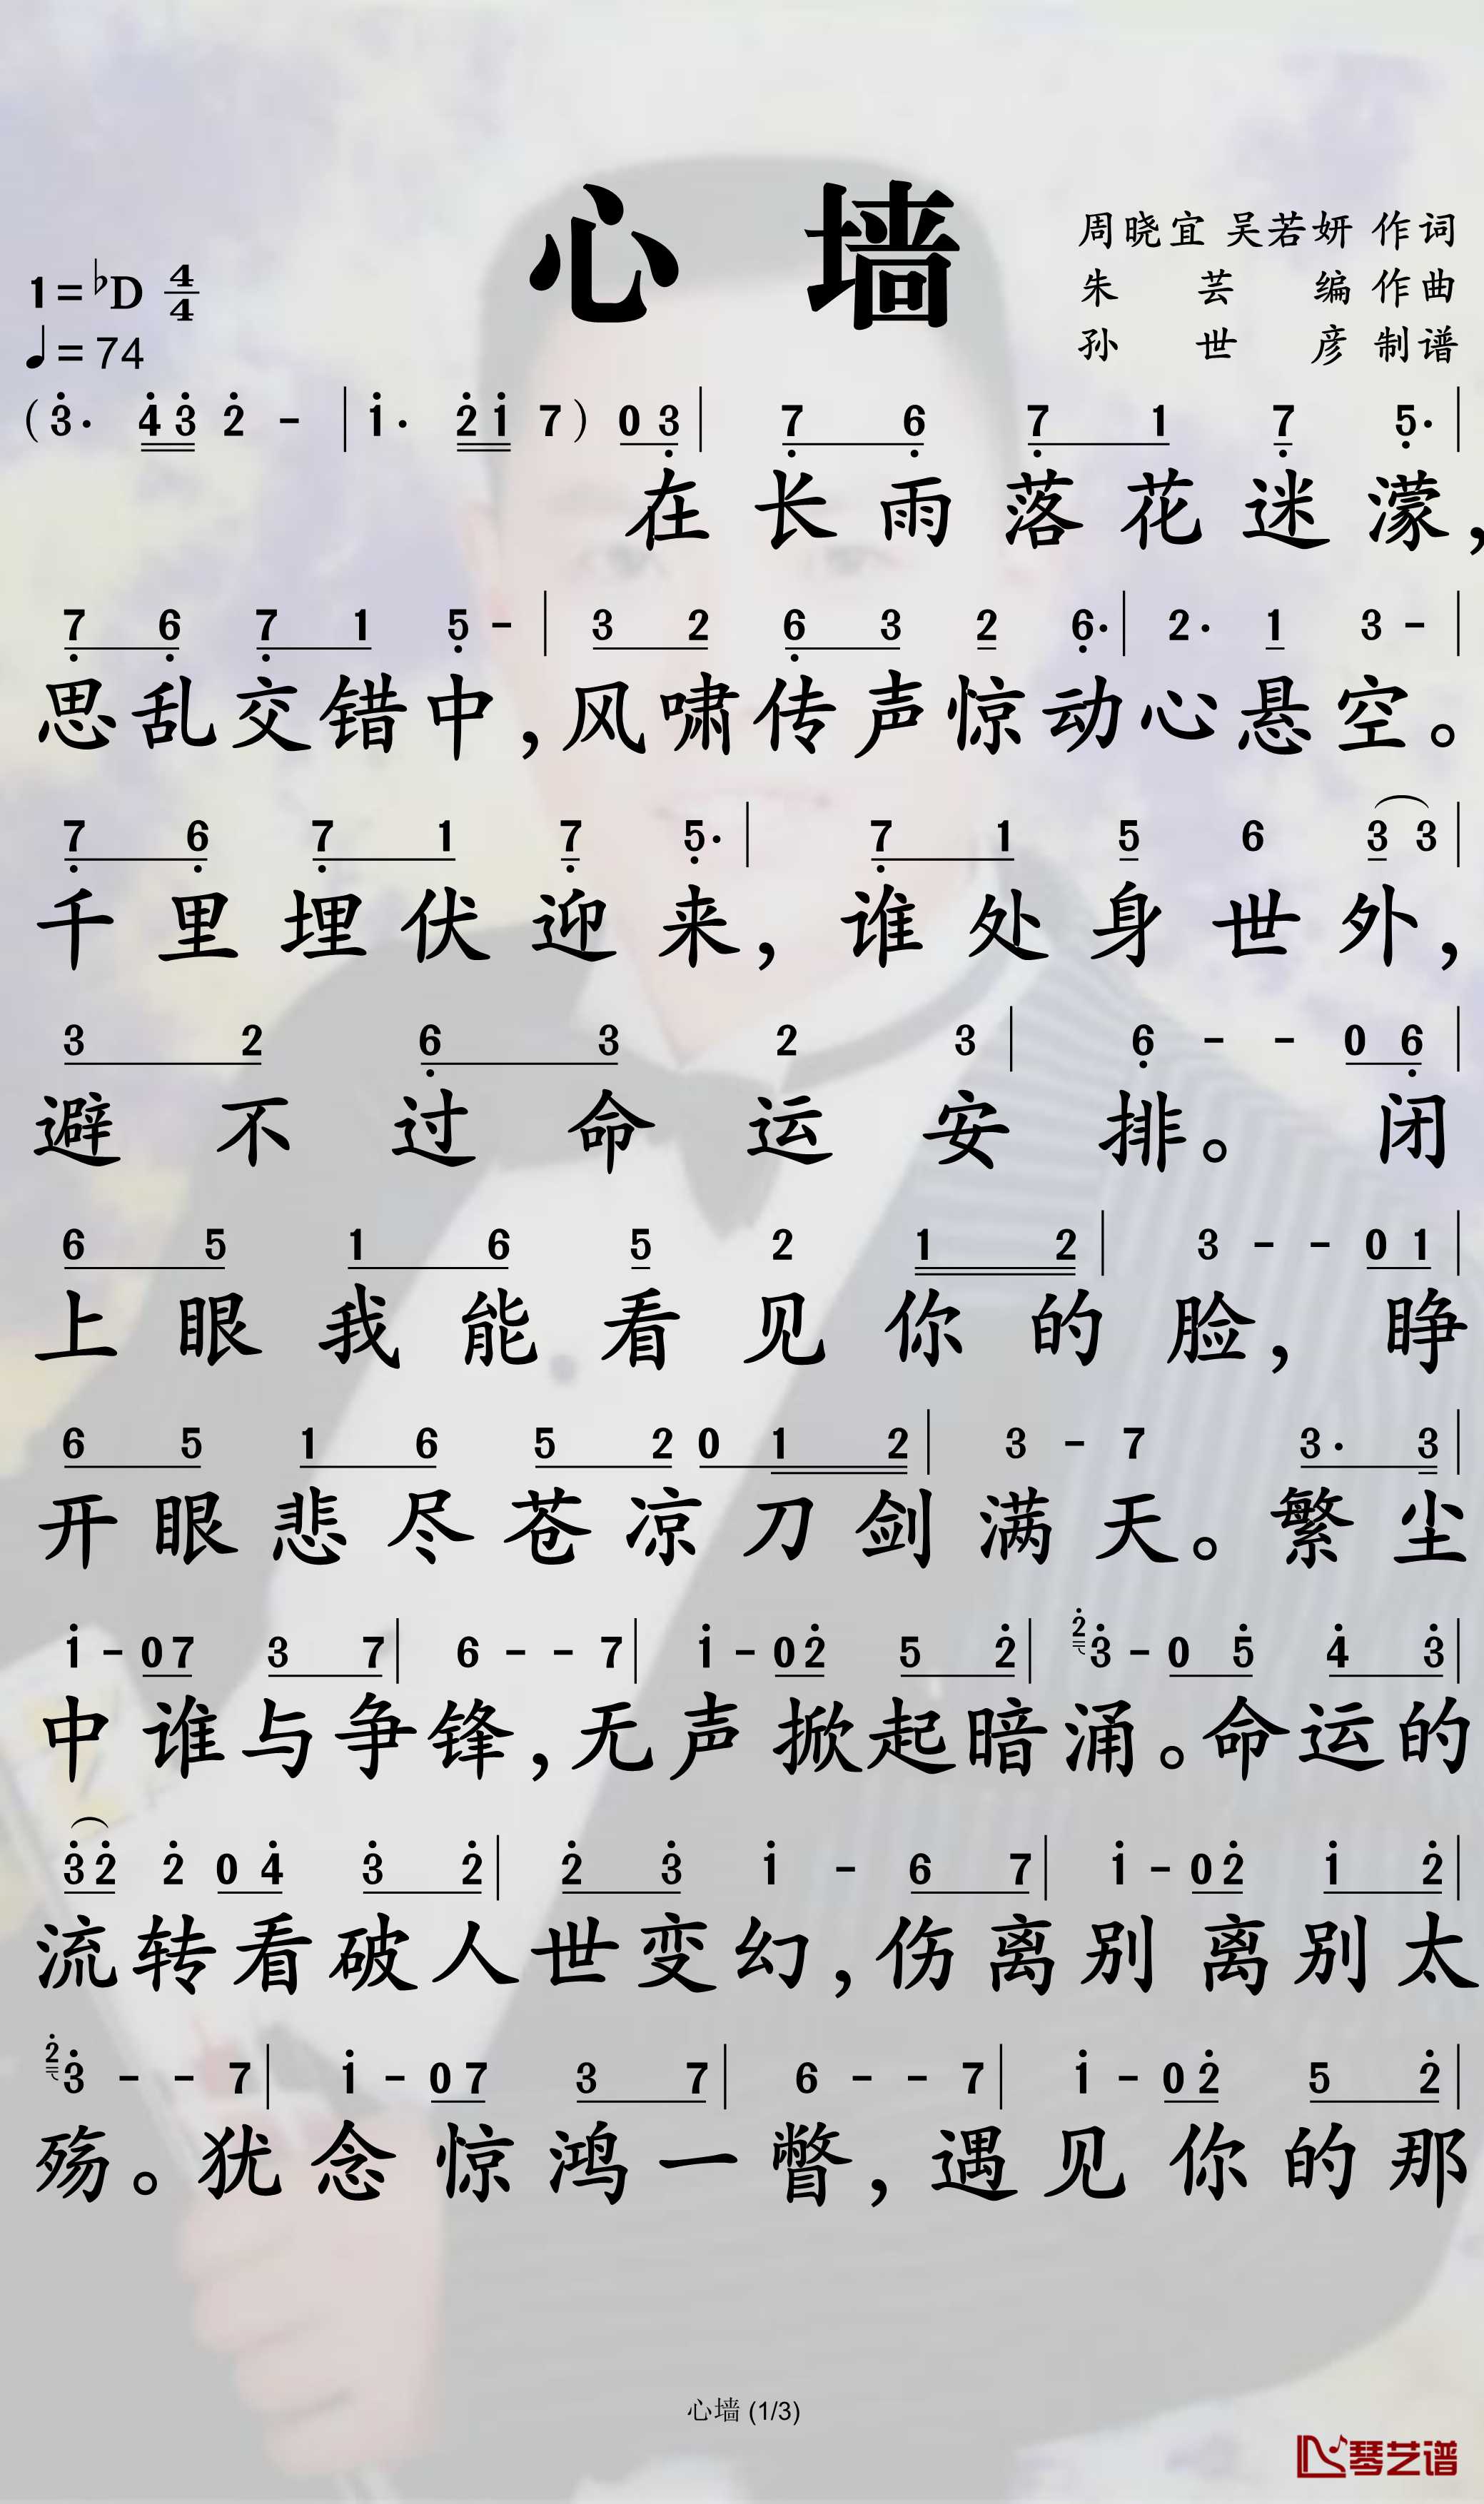 心 墙
周晓宜 吴若妍 作词
朱 芸 编 作曲
孙 世 彦 制谱
1=♭D 4/4
♩=74
(3̇· 4̇3̇ 2̇ - | 1̇· 2̇1̇ 7) 03̣ | 7̣ 6̣ 7̣ 1 7̣ 5̣· |
在长雨落花迷濛，
7̣ 6̣ 7̣ 1 5̣ - | 3 2 6̣ 3 2 6̣· | 2· 1 3 - |
思乱交错中，风啸传声惊动心悬空。
7̣ 6̣ 7̣ 1 7̣ 5̣· | 7̣ 1 5 6 3 3 |
千里埋伏迎来，谁处身世外，
3 2 6̣ 3 2 3 | 6̣ - - 0 6̣ |
避不过命运安排。闭
6 5 1 6 5 2 1 2 | 3 - - 0 1 |
上眼我能看见你的脸，睁
6 5 1 6 5 2 0 1 2 | 3 - 7 3· 3 |
开眼悲尽苍凉刀剑满天。繁尘
1̇ - 0 7 3 7 | 6 - - 7 | 1̇ - 0 2̇ 5 2̇ | 2̇ 3̇ - 0 5̇ 4̇ 3̇ |
中谁与争锋，无声掀起暗涌。命运的
3̇ 2̇ 2̇ 0 4̇ 3̇ 2̇ | 2̇ 3̇ 1̇ - 6 7 | 1̇ - 0 2̇ 1̇ 2̇ |
流转看破人世变幻，伤离别离别太
2̇ 3̇ - - 7 | 1̇ - 0 7 3 7 | 6 - - 7 | 1̇ - 0 2̇ 5 2̇ |
殇。犹念惊鸿一瞥，遇见你的那
心墙 (1/3)
琴艺谱